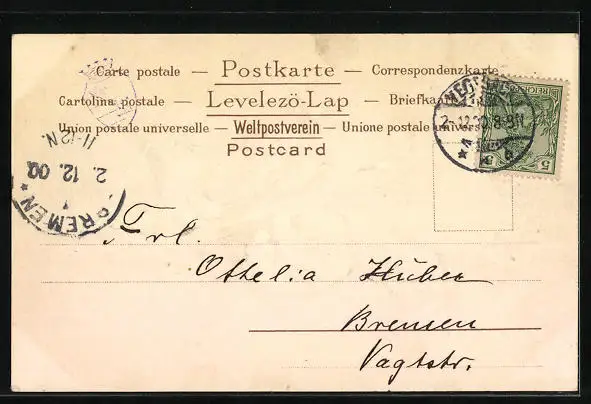 Carte postale — Postkarte — Correspondenzkarte
Cartolina postale — Levelezö-Lap — Briefkaart
Union postale universelle — Weltpostverein — Unione postale universale
Postcard
REICHSPOST
5
2.12.00 8-9N
BREMEN
2. 12. 00
11-12 N.
Frl.
Ottelia Huber
Bremen
Vagtstr.